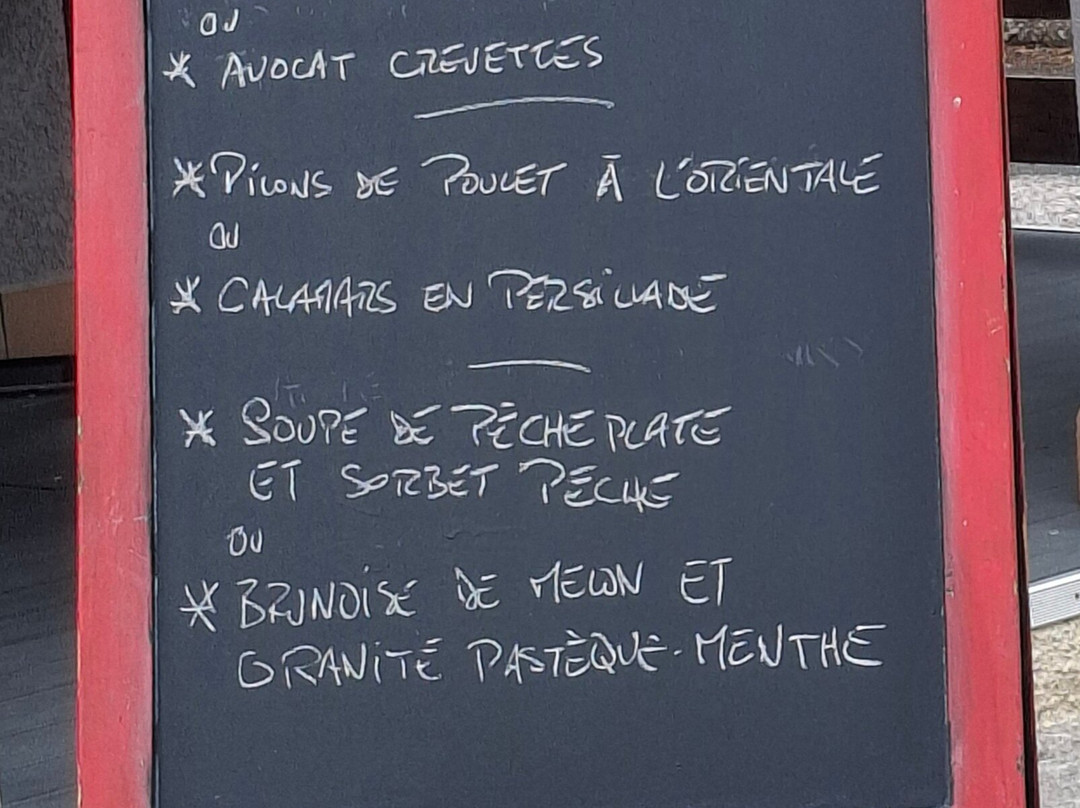 OU
* AVOCAT CREVETTES
* PILONS DE POULET À L'ORIENTALE
OU
* CALAMARS EN PERSILLADE
* SOUPE DE PÊCHE PLATE
ET SORBET PÊCHE
OU
* BRUNOISE DE MELON ET
GRANITÉ PASTÈQUE-MENTHE